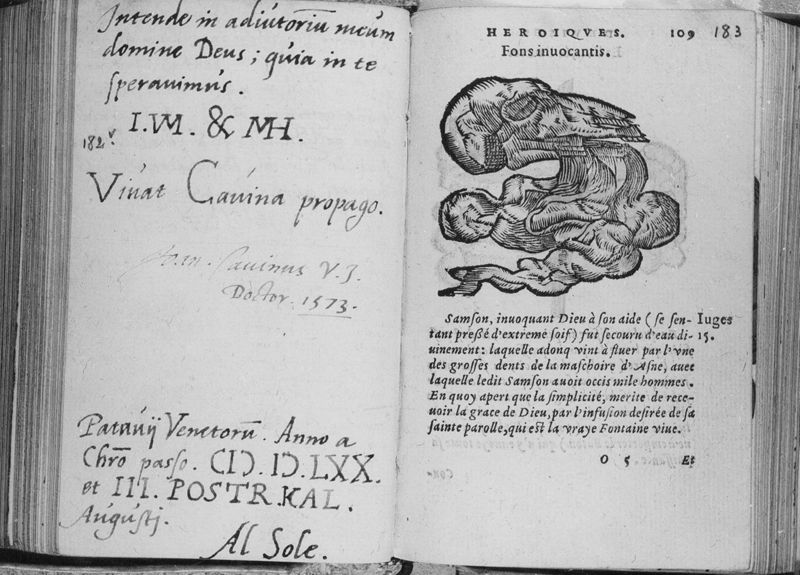 Intende in adiutoriũ meum
domine Deus; quia in te
speravimus.
I.VM. & MH.
182 v.
Vivat Cavina propago.
Joan. Cavinus V. J.
Doctor. 1573.
Patavij Venetorũ. Anno a
Chrõ passo. CIↃ. IↃ. LXX.
et III. POSTR. KAL.
Augustj.
Al Sole.
HEROIQVES. 109 183
Fons inuocantis.
Samſon, inuoquant Dieu à ſon aide (ſe ſen- Iuges
tant preſſé d'extreme ſoif) fut ſecouru d'eau di- 15.
uinement: laquelle adonq vint à fluer par l'vne
des groſſes dents de la maſchoire d'Aſne, auec
laquelle ledit Samſon auoit occis mile hommes.
En quoy apert que la ſimplicité, merite de rece-
uoir la grace de Dieu, par l'infuſion deſirée de ſa
ſainte parolle, qui eſt la vraye Fontaine viue.
O 5 Et